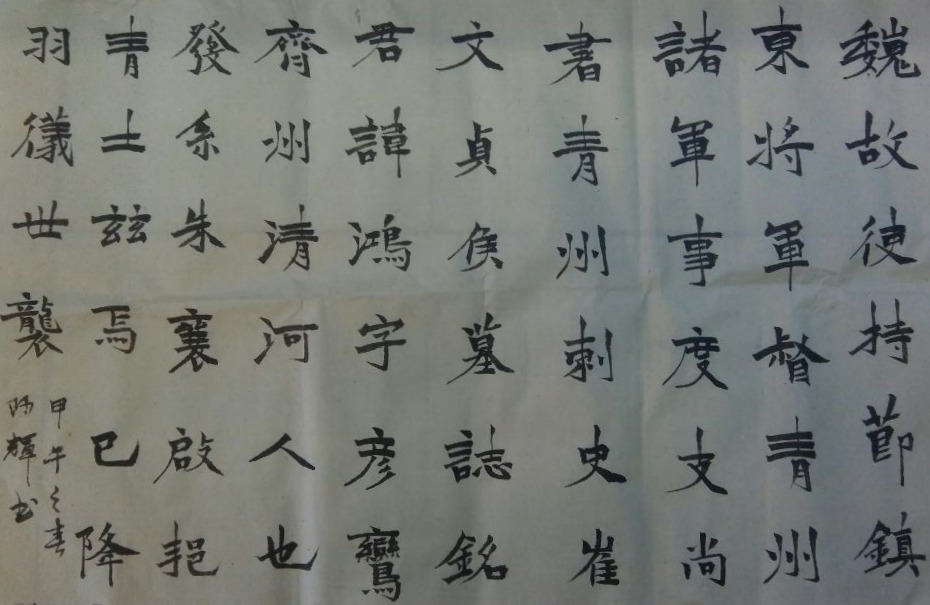 魏故使持莭鎮
東將軍督青州
諸軍事度支尚
書青州刺史崔
文貞侯墓誌銘
君諱鴻字彦鸞
齊州清河人也
發系朱襄啟挹
青土兹焉已降
羽儀世襲
甲午之春
輝书